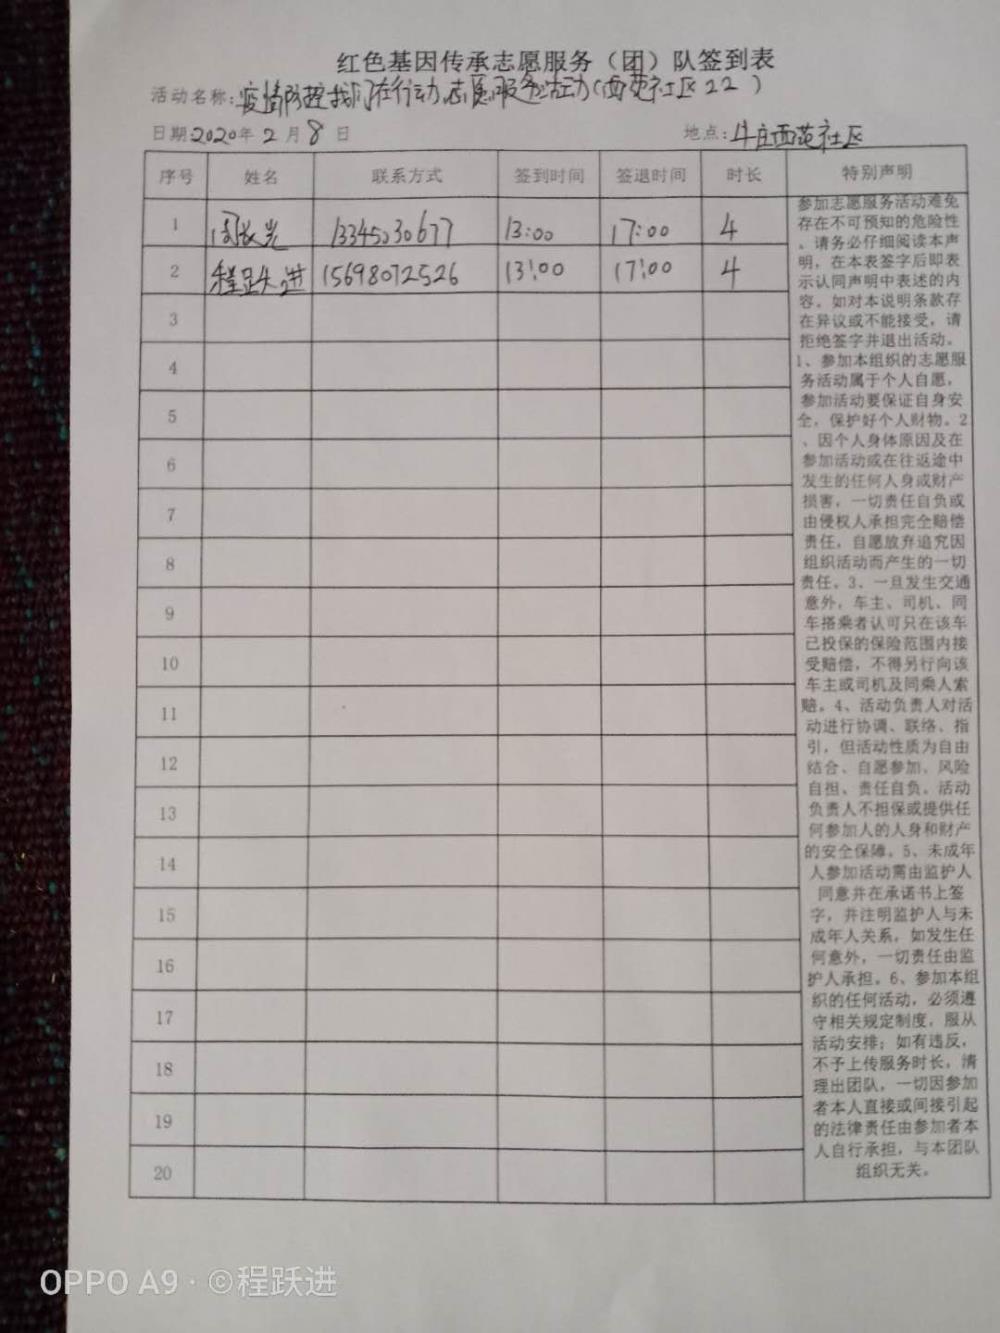 红色基因传承志愿服务（团）队签到表
活动名称:疫情防控我们在行动志愿服务活动(西苑社区22)
日期2020年2月8日 地点:牛庄西苑社区
序号 姓名 联系方式 签到时间 签退时间 时长 特别声明
1 周长光 13345030677 13:00 17:00 4
2 程跃进 15698072526 13:00 17:00 4
3
4
5
6
7
8
9
10
11
12
13
14
15
16
17
18
19
20
参加志愿服务活动难免
存在不可预知的危险性
，请务必仔细阅读本声
明，在本表签字后即表
示认同声明中表述的内
容。如对本说明条款存
在异议或不能接受，请
拒绝签字并退出活动。
1、参加本组织的志愿服
务活动属于个人自愿，
参加活动要保证自身安
全，保护好个人财物。2
、因个人身体原因及在
参加活动或在往返途中
发生的任何人身或财产
损害，一切责任自负或
由侵权人承担完全赔偿
责任，自愿放弃追究因
组织活动而产生的一切
责任。3、一旦发生交通
意外，车主、司机、同
车搭乘者认可只在该车
已投保的保险范围内接
受赔偿，不得另行向该
车主或司机及同乘人索
赔。4、活动负责人对活
动进行协调、联络、指
引，但活动性质为自由
结合、自愿参加、风险
自担、责任自负。活动
负责人不担保或提供任
何参加人的人身和财产
的安全保障。5、未成年
人参加活动需由监护人
同意并在承诺书上签
字，并注明监护人与未
成年人关系，如发生任
何意外，一切责任由监
护人承担。6、参加本组
织的任何活动，必须遵
守相关规定制度，服从
活动安排；如有违反，
不予上传服务时长，清
理出团队，一切因参加
者本人直接或间接引起
的法律责任由参加者本
人自行承担，与本团队
组织无关。
OPPO A9 · ©程跃进